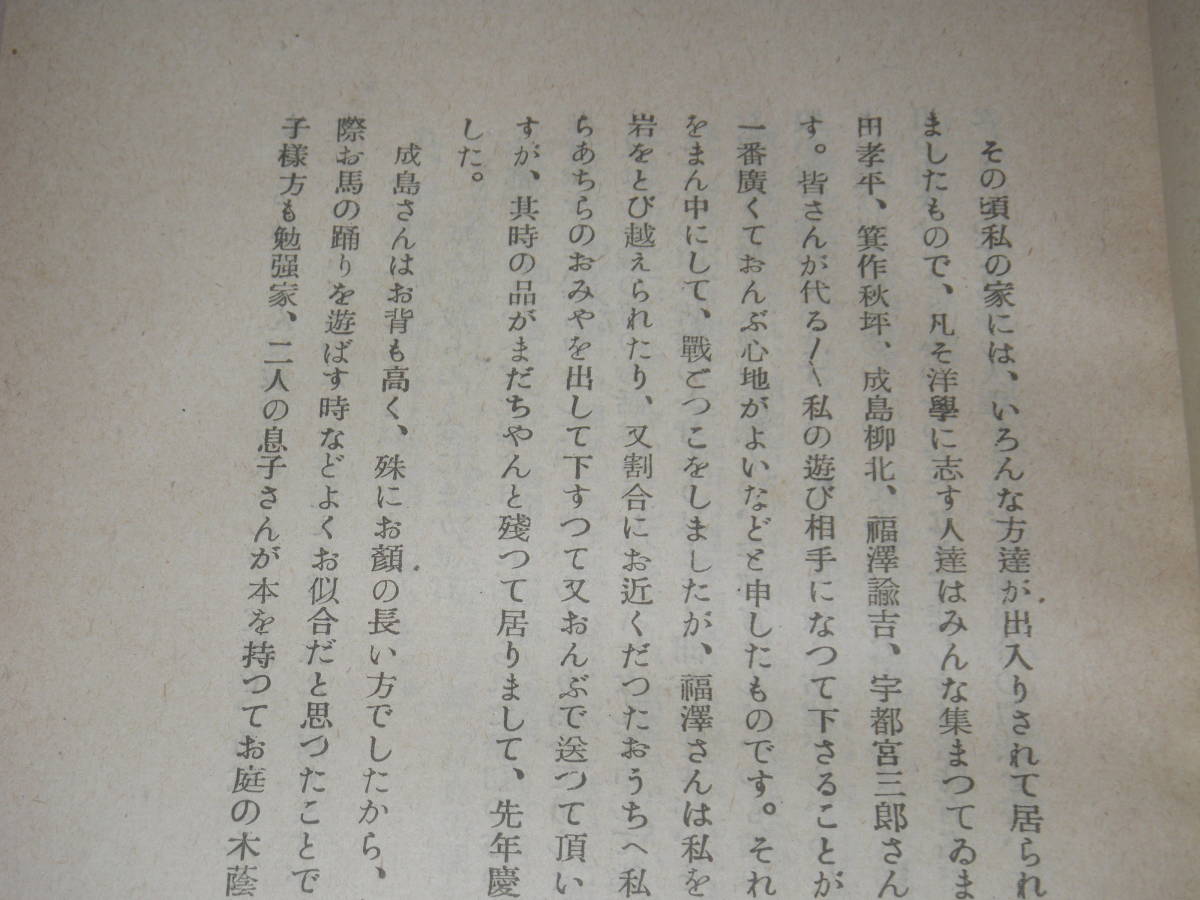 その頃私の家には、いろんな方達が出入りされて居られ
ましたもので、凡そ洋學に志す人達はみんな集まつてゐま
田孝平、箕作秋坪、成島柳北、福澤諭吉、宇都宮三郎さん
す。皆さんが代る〳〵私の遊び相手になつて下さることが
一番廣くておんぶ心地がよいなどと申したものです。それ
をまん中にして、戰ごつこをしましたが、福澤さんは私を
岩をとび越えられたり、又割合にお近くだつたおうちへ私
らあちらのおみやを出して下すつて又おんぶで送つて頂い
すが、其時の品がまだちやんと殘つて居りまして、先年慶
した。
成島さんはお背も高く、殊にお顏の長い方でしたから、
際お馬の踊りを遊ばす時などよくお似合だと思つたことで
子樣方も勉强家、二人の息子さんが本を持つてお庭の木蔭